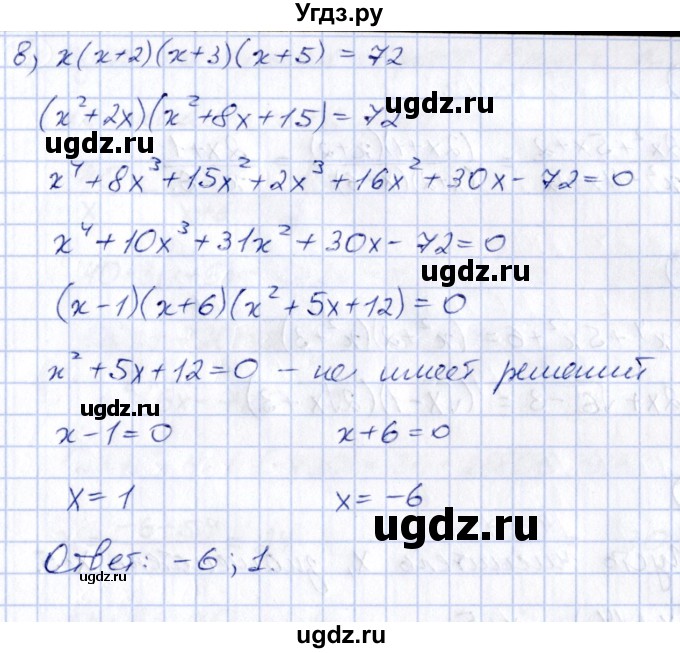 Угдз.ру
8) x(x+2)(x+3)(x+5) = 72
(x²+2x)(x²+8x+15) = 72
ugdz.ru
ugdz.ru
x⁴+8x³+15x²+2x³+16x²+30x-72=0
x⁴+10x³+31x²+30x-72=0
ugdz.ru
(x-1)(x+6)(x²+5x+12)=0
x²+5x+12=0 – не имеет решений
ugdz.ru
x-1=0 x+6=0
x=1 x=-6
ugdz.ru
Ответ: -6; 1.
ugdz.ru
ugdz.ru